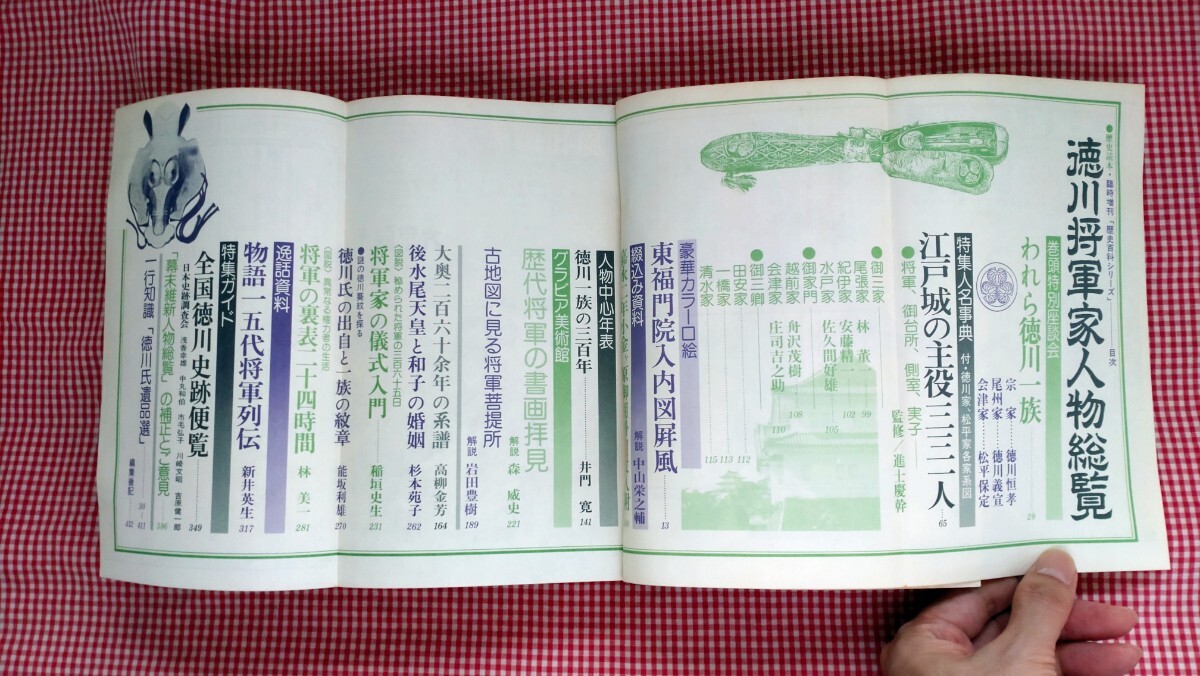 ●歴史読本・臨時増刊「歴史百科シリーズ」
徳川将軍家人物総覧
目次
巻頭特別座談会
われら徳川一族
宗家……徳川恒孝
尾州家……徳川義宣
会津家……松平保定
29
特集人名事典
付・徳川家、松平家各家系図
江戸城の主役三三一人
……65
●将軍、御台所、側室、実子
監修/進士慶幹
●御三家
尾張家 林董一 99
紀伊家 安藤精一 102
水戸家 佐久間好雄 105
●御家門
越前家 舟沢茂樹 108
会津家 庄司吉之助 110
●御三卿
田安家 112
一橋家 113
清水家 115
豪華カラー口絵
東福門院入内図屛風
解説 中山栄之輔
13
綴込み資料
人物中心年表
徳川一族の三百年……井門寛 141
グラビア美術館
歴代将軍の書画拝見
解説 森威史 221
古地図に見る将軍菩提所
解説 岩田豊樹 189
大奥二百六十余年の系譜 高柳金芳 164
後水尾天皇と和子の婚姻 杉本苑子 262
〈図説〉秘められた将軍の三百六十五日
将軍家の儀式入門……稲垣史生 231
●謎の徳川葵紋を探る
徳川氏の出自と一族の紋章 能坂利雄 270
〈図説〉異常なる権力者の生活
将軍の裏表二十四時間 林美一 281
逸話資料
物語一五代将軍列伝 新井英生 317
特集ガイド
全国徳川史跡便覧……349
日本史跡調査会 浅香幸雄 中丸和伯 市毛弘子 川崎文昭 吉原健一郎
「幕末維新人物総覧」の補正とご意見
一行知識「徳川氏遺品選」
編集後記
412